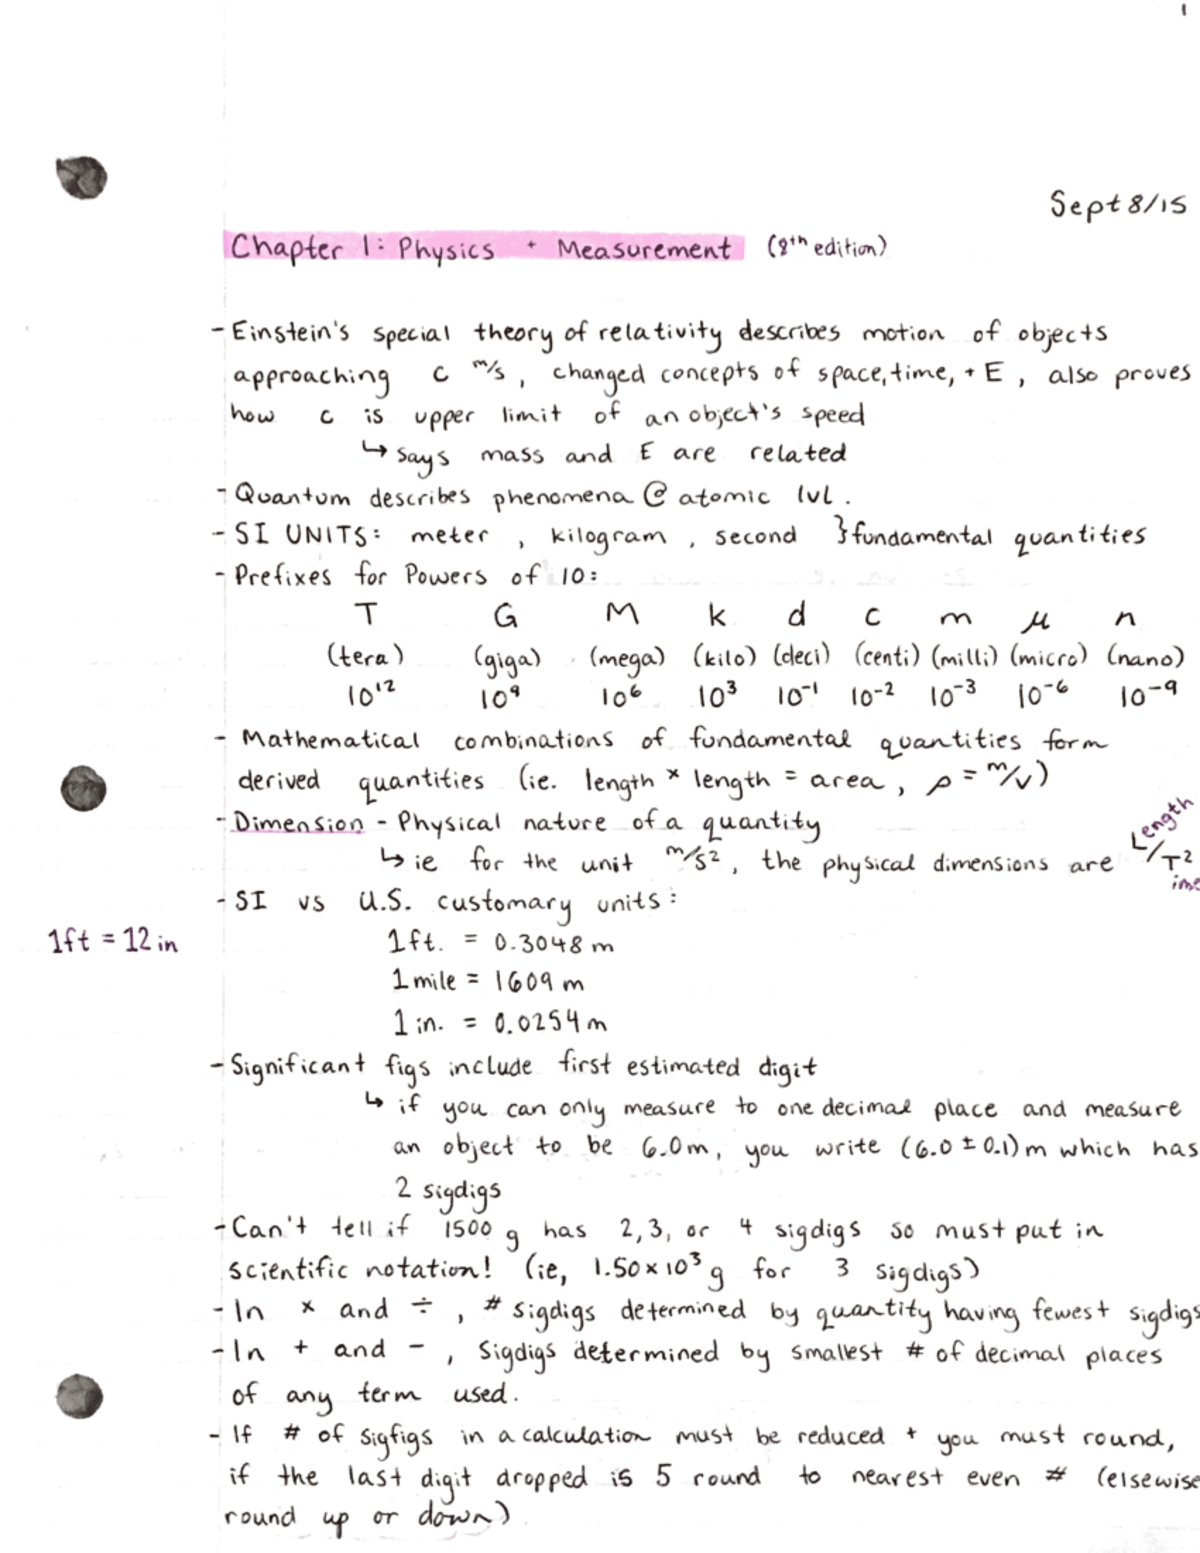 1
Sept 8/15
Chapter 1: Physics + Measurement (8th edition)
- Einstein's special theory of relativity describes motion of objects
approaching c m/s, changed concepts of space, time, + E, also proves
how c is upper limit of an object's speed
↳ says mass and E are related
- Quantum describes phenomena @ atomic lvl.
- SI UNITS: meter, kilogram, second } fundamental quantities
- Prefixes for Powers of 10:
T G M k d c m μ n
(tera) (giga) (mega) (kilo) (deci) (centi) (milli) (micro) (nano)
10¹² 10⁹ 10⁶ 10³ 10⁻¹ 10⁻² 10⁻³ 10⁻⁶ 10⁻⁹
- Mathematical combinations of fundamental quantities form
derived quantities (ie. length × length = area, ρ = m/v)
- Dimension - Physical nature of a quantity
↳ ie for the unit m/s², the physical dimensions are Length/T²ime
- SI vs U.S. customary units:
1ft = 12 in
1ft. = 0.3048 m
1 mile = 1609 m
1 in. = 0.0254 m
- Significant figs include first estimated digit
↳ if you can only measure to one decimal place and measure
an object to be 6.0m, you write (6.0 ± 0.1)m which has
2 sigdigs
- Can't tell if 1500 g has 2, 3, or 4 sigdigs so must put in
scientific notation! (ie, 1.50×10³ g for 3 sigdigs)
- In × and ÷, # sigdigs determined by quantity having fewest sigdigs
- In + and -, sigdigs determined by smallest # of decimal places
of any term used.
- If # of sigfigs in a calculation must be reduced + you must round,
if the last digit dropped is 5 round to nearest even # (elsewise
round up or down)